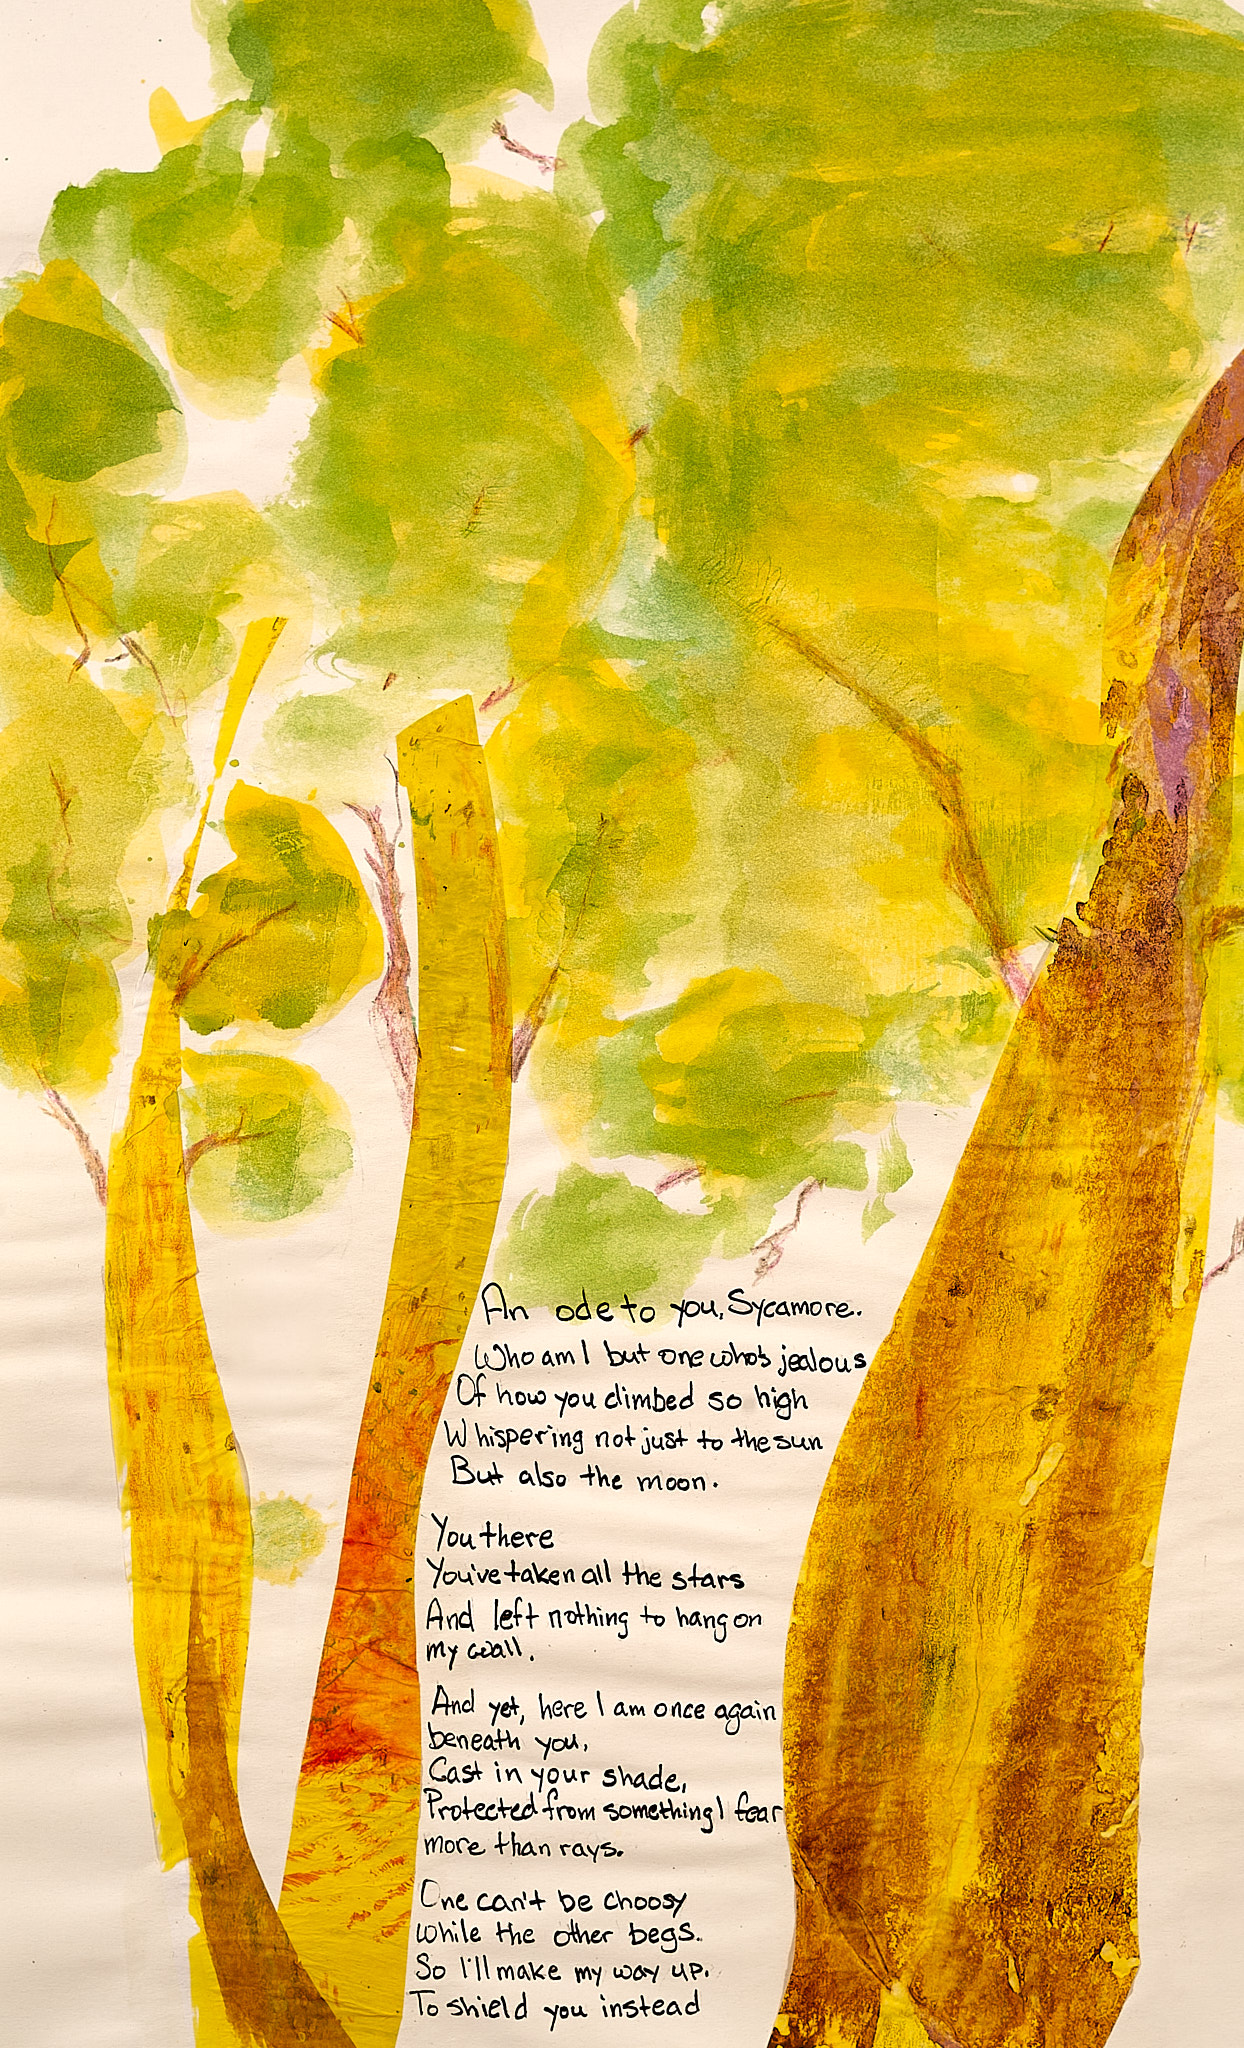 An ode to you, Sycamore.
Who am I but one who's jealous
Of how you climbed so high
Whispering not just to the sun
But also the moon.
You there
You've taken all the stars
And left nothing to hang on
my wall.
And yet, here I am once again
beneath you,
Cast in your shade,
Protected from something I fear
more than rays.
One can't be choosy
while the other begs.
So I'll make my way up.
To shield you instead